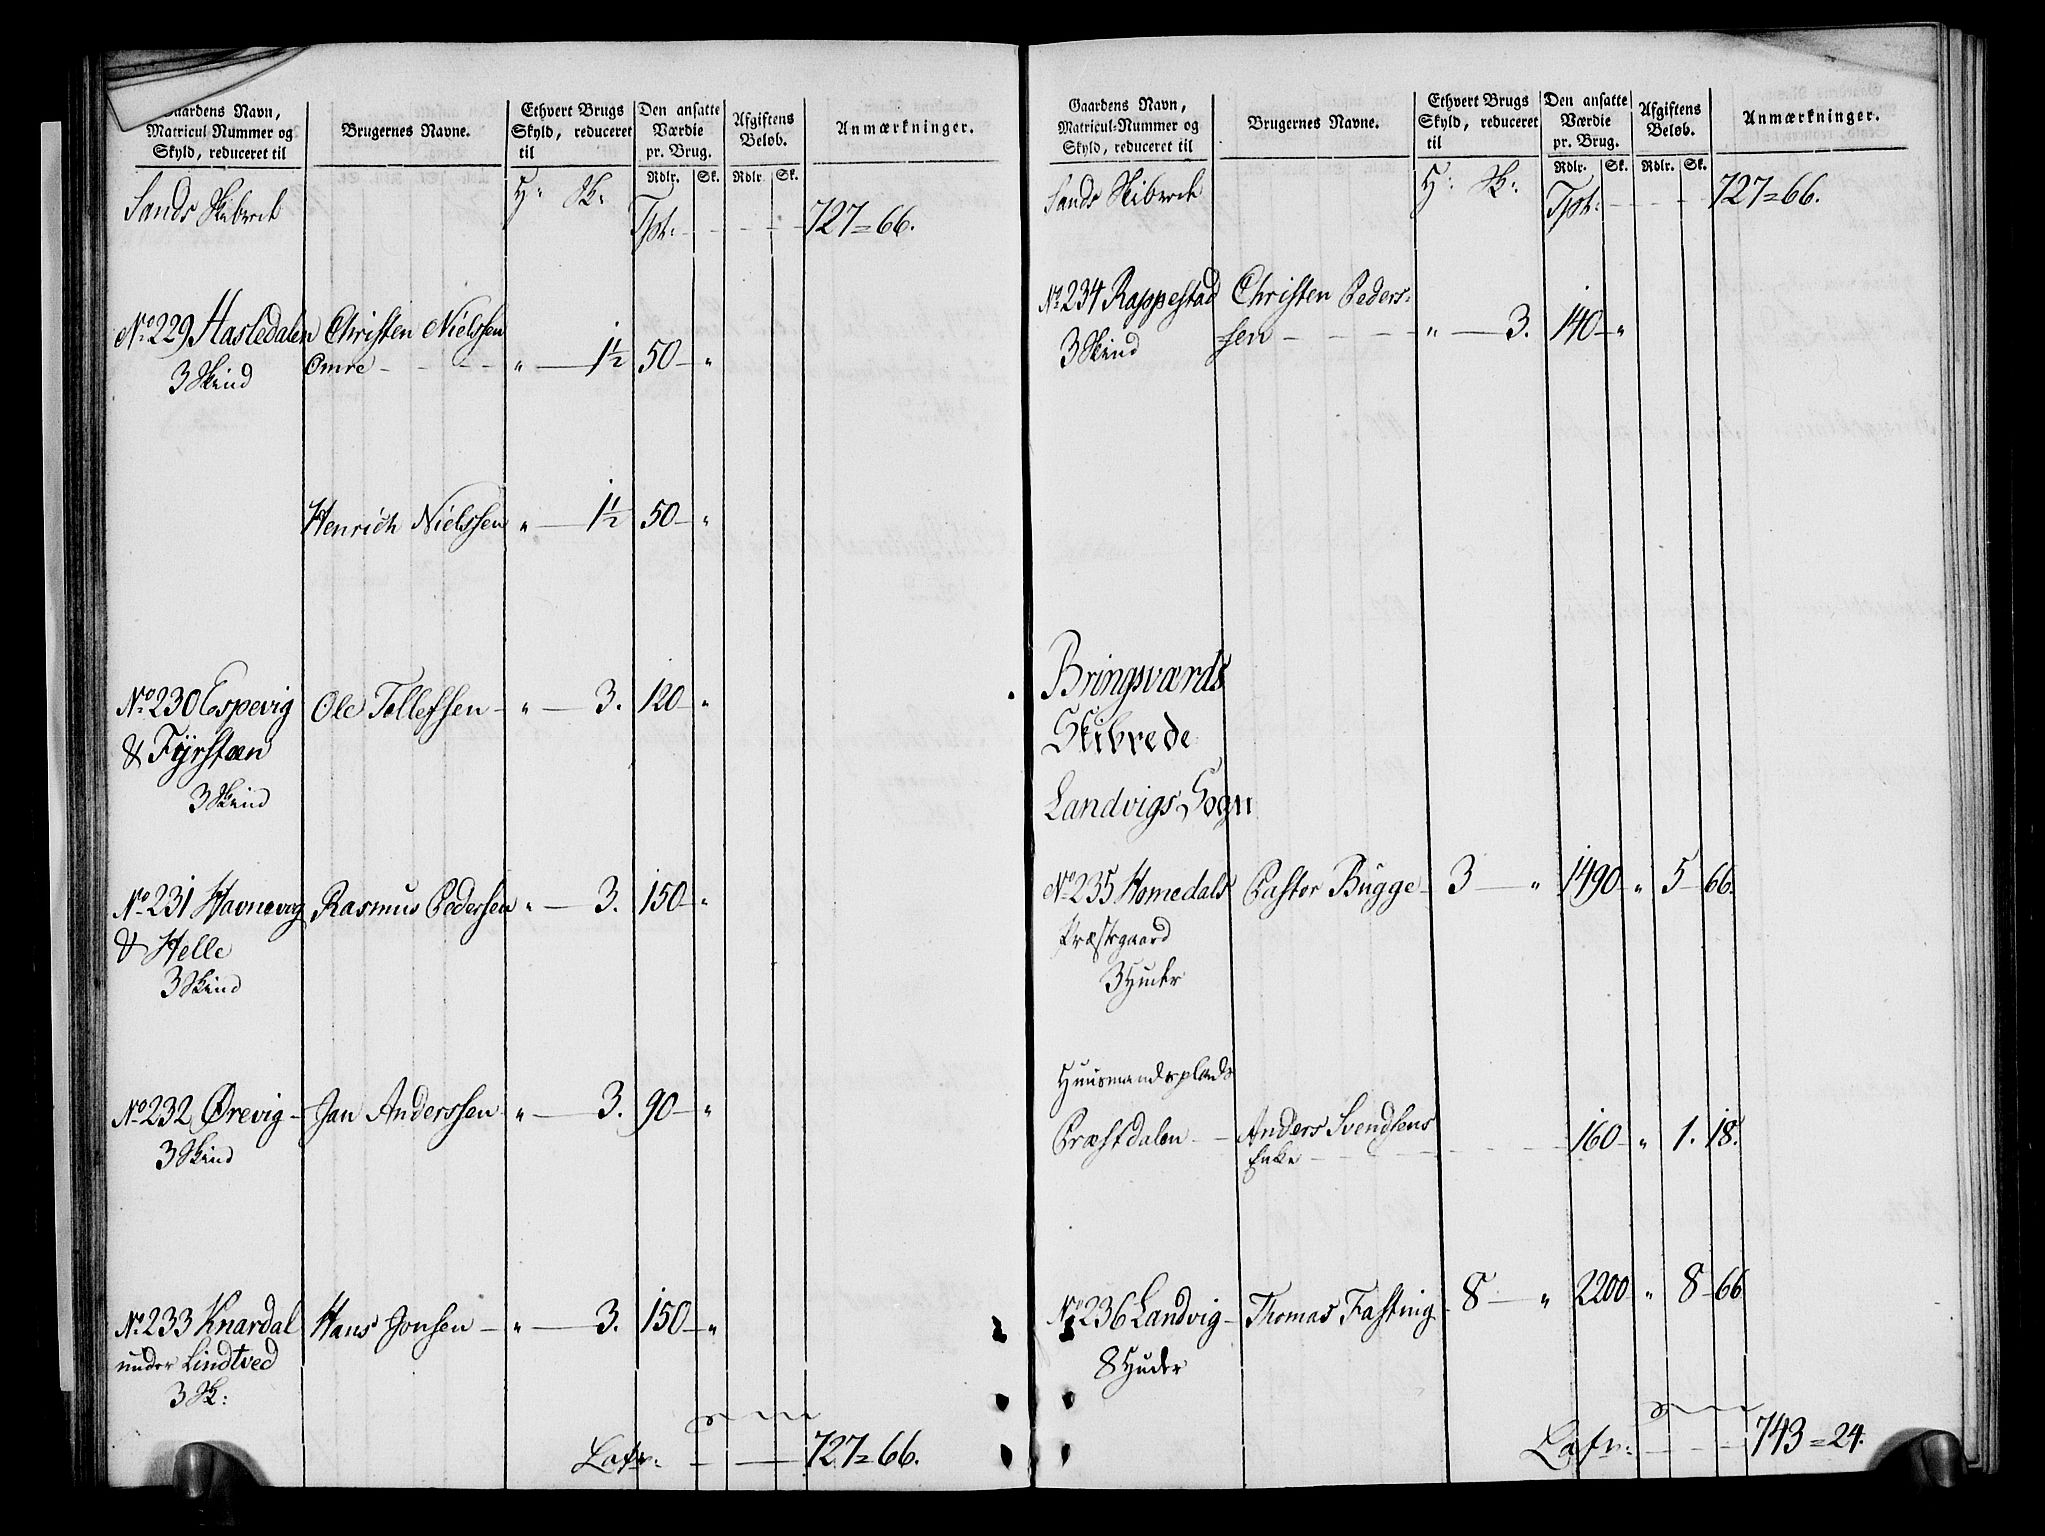 Gaardens Navn, Matricul-Nummer og Skyld, reduceret til | Brugernes Navne. | Ethvert Brugs Skyld, reduceret til | Den ansatte Værdie pr. Brug. | Afgiftens Beløb. | Anmærkninger.
Rdlr. Sk. Rdlr. Sk.
Sands Skibrede H: Sk: Tpt: - - - 727=66.
No. 229 Hasledalen Christen Nielssen
3 Skind Omre - - - „ — 1½ 50 — „
Henrich Nielssen „ — 1½ 50 — „
No. 230 Espevig Ole Tellefsen — „ — 3. 120 „
& Fÿrstæn
3 Skind
No. 231 Havnevog Rasmus Pedersen „ — 3. 150 — „
& Helle
3 Skind
No. 232 Ørevig — Jan Anderssen — „ — 3. 90 — „
3 Skind
No. 233 Knardal Hans Jonsen — „ — 3. 150 — „
under Lindtved
3 Sk:
Latr: - — 727=66.
Gaardens Navn, Matricul-Nummer og Skyld, reduceret til | Brugernes Navne. | Ethvert Brugs Skyld, reduceret til | Den ansatte Værdie pr. Brug. | Afgiftens Beløb. | Anmærkninger.
Rdlr. Sk. Rdlr. Sk.
Sands Skibrede H: Sk: Tpt: - - - 727=66.
No. 234 Rappestad Christen Peders-
3 Skind sen - - - „ — 3. 140 — „
Bringsværds
Skibrede
Landvigs Sogn
No. 235 Homedals Pastor Bugge — 3 — „ 1490 — „ 5 — 66.
Præstegaard
3 Huder
Huusmandsplads
Præstdalen — Anders Svendsens 160 — „ 1. 18.
Enke - - -
No. 236 Landvig — Thomas Fasting — 8 — „ 2200 „ 8 — 66
8 Huder
Latr: - - - 743=24.